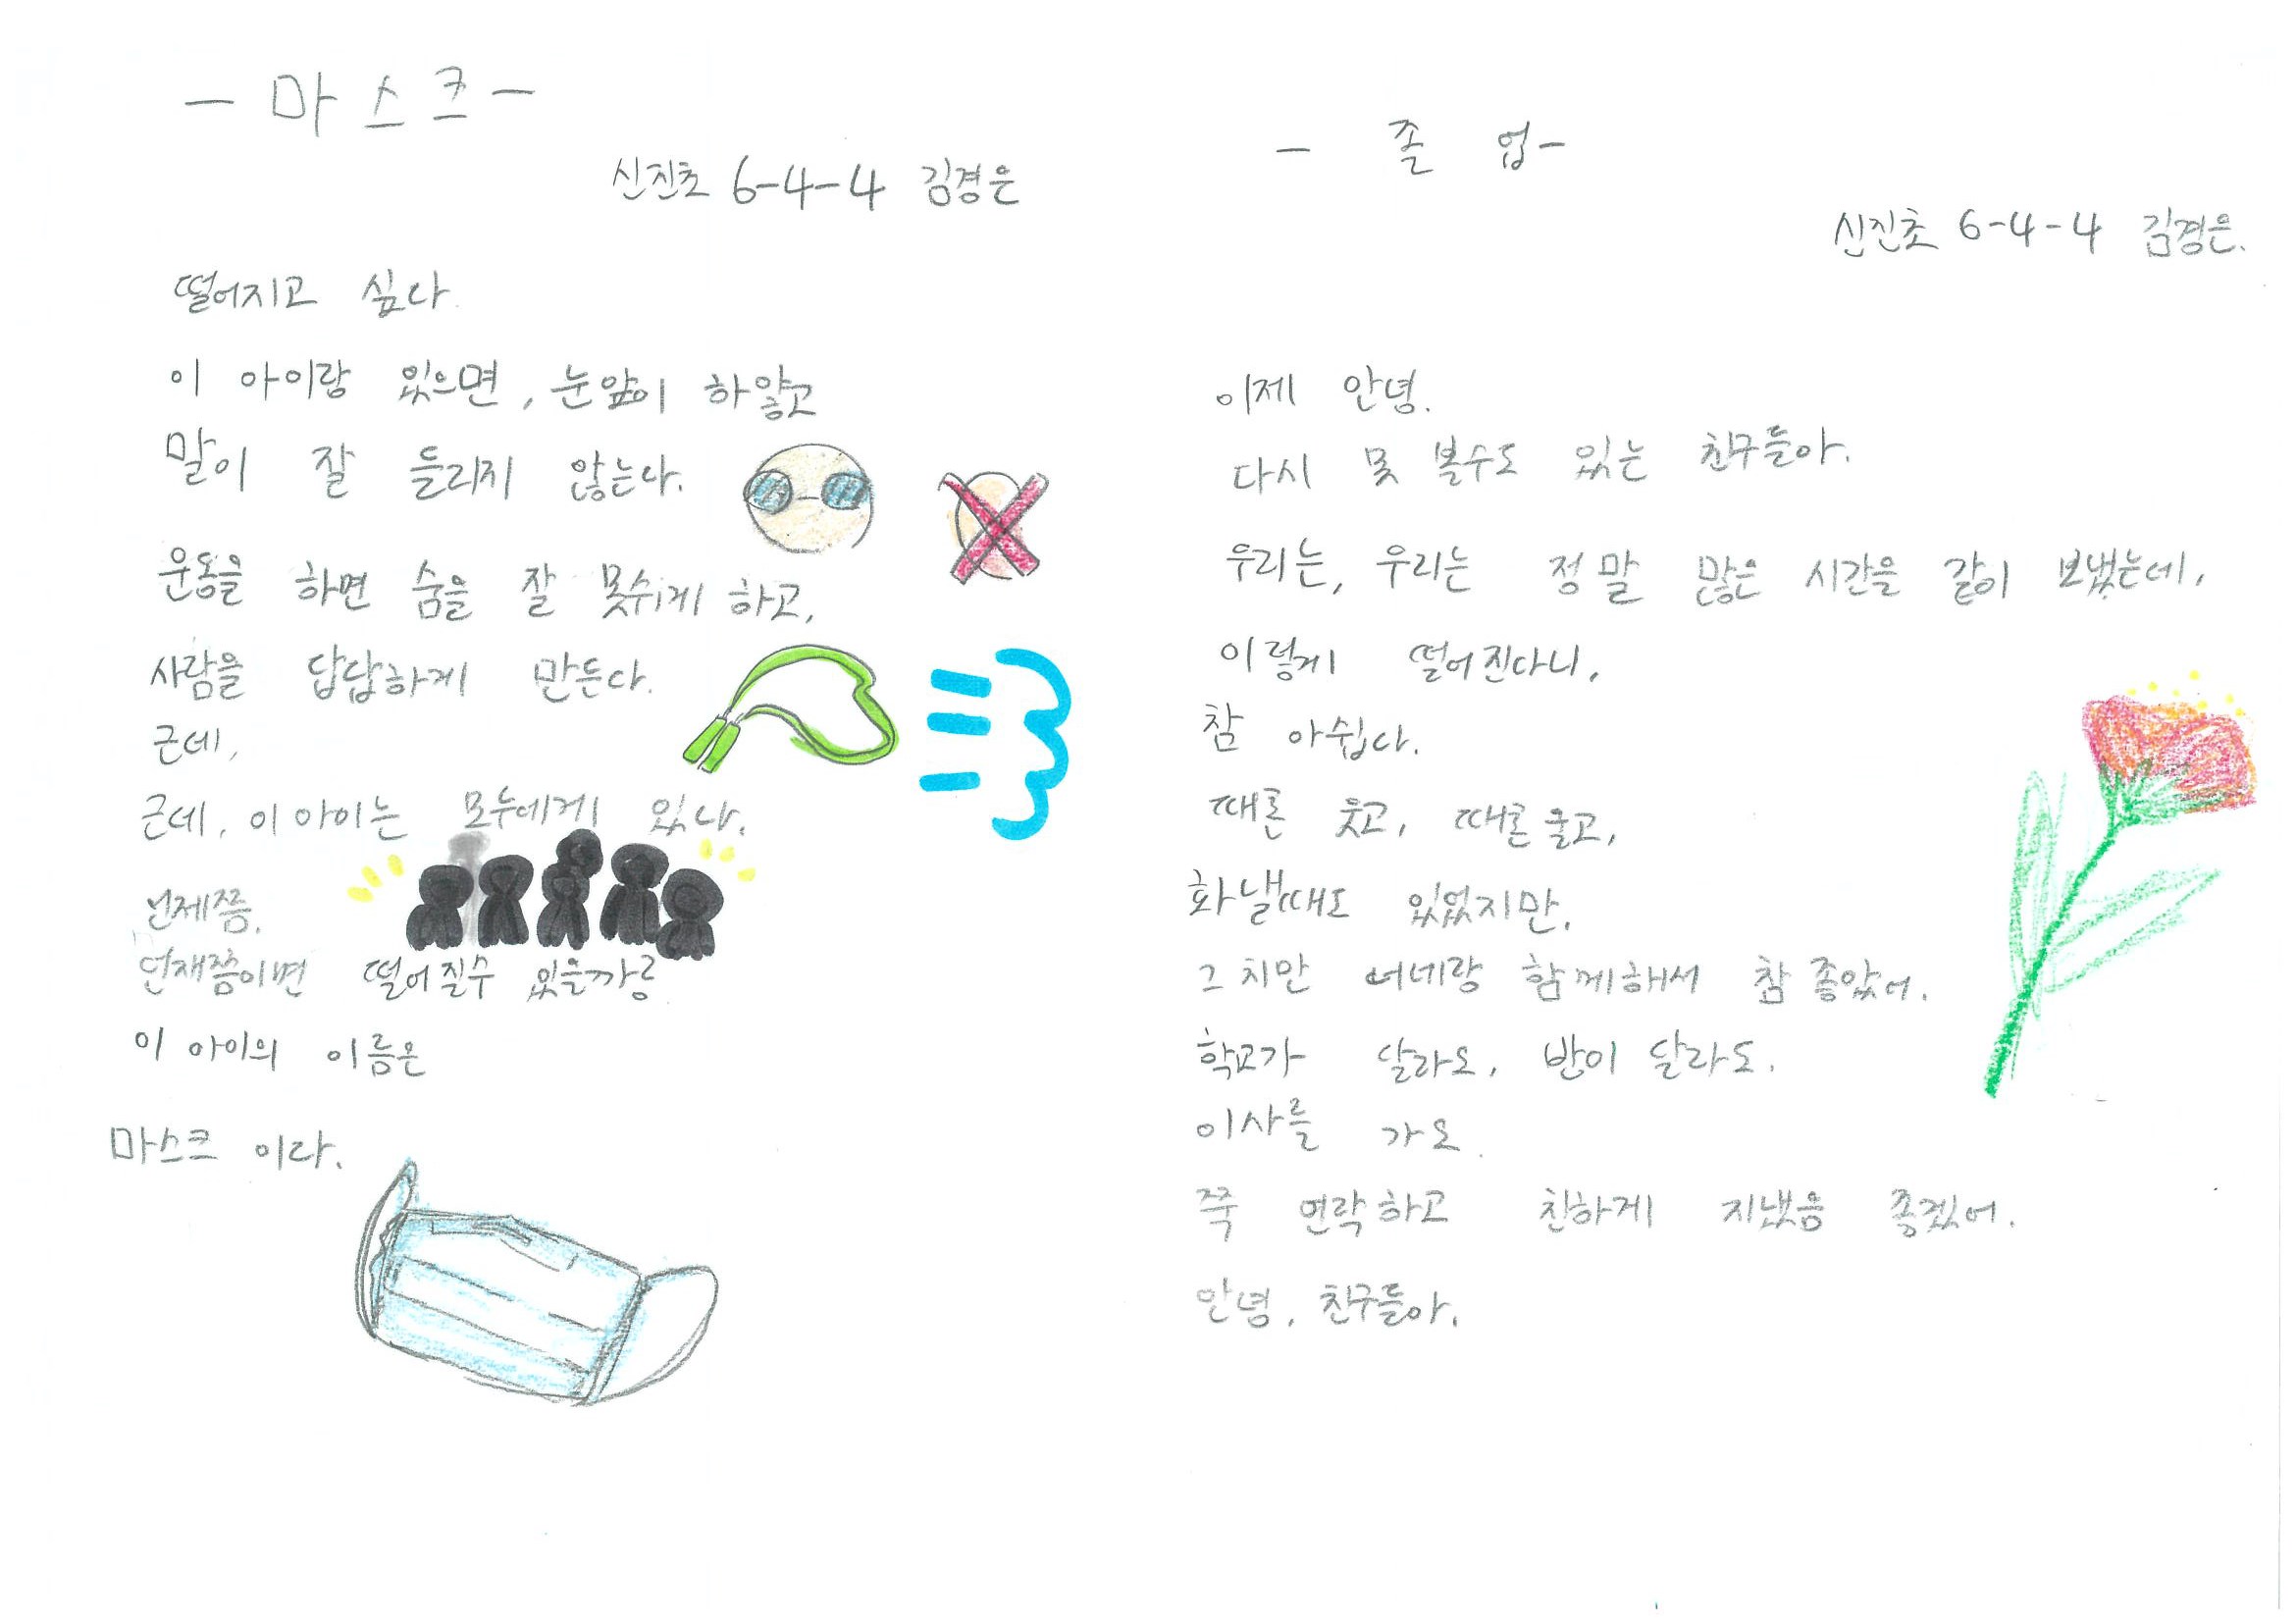 - 마스크 -
신진초 6-4-4 김경은
떨어지고 싶다.
이 아이랑 있으면, 눈앞이 하얗고
말이 잘 들리지 않는다.
운동을 하면 숨을 잘 못쉬게 하고,
사람을 답답하게 만든다.
근데,
근데, 이 아이는 모두에게 있다.
언제쯤,
언재쯤이면 떨어질수 있을까?
이 아이의 이름은
마스크 이다.
- 졸 업 -
신진초 6-4-4 김경은.
이제 안녕.
다시 못 볼수도 있는 친구들아.
우리는, 우리는 정말 많은 시간을 같이 보냈는데,
이렇게 떨어진다니,
참 아쉽다.
때론 웃고, 때론 울고,
화낼때도 있었지만,
그치만 너네랑 함께해서 참 좋았어.
학교가 달라도, 반이 달라도,
이사를 가도
쭉 연락하고 친하게 지냈음 좋겠어.
안녕, 친구들아.